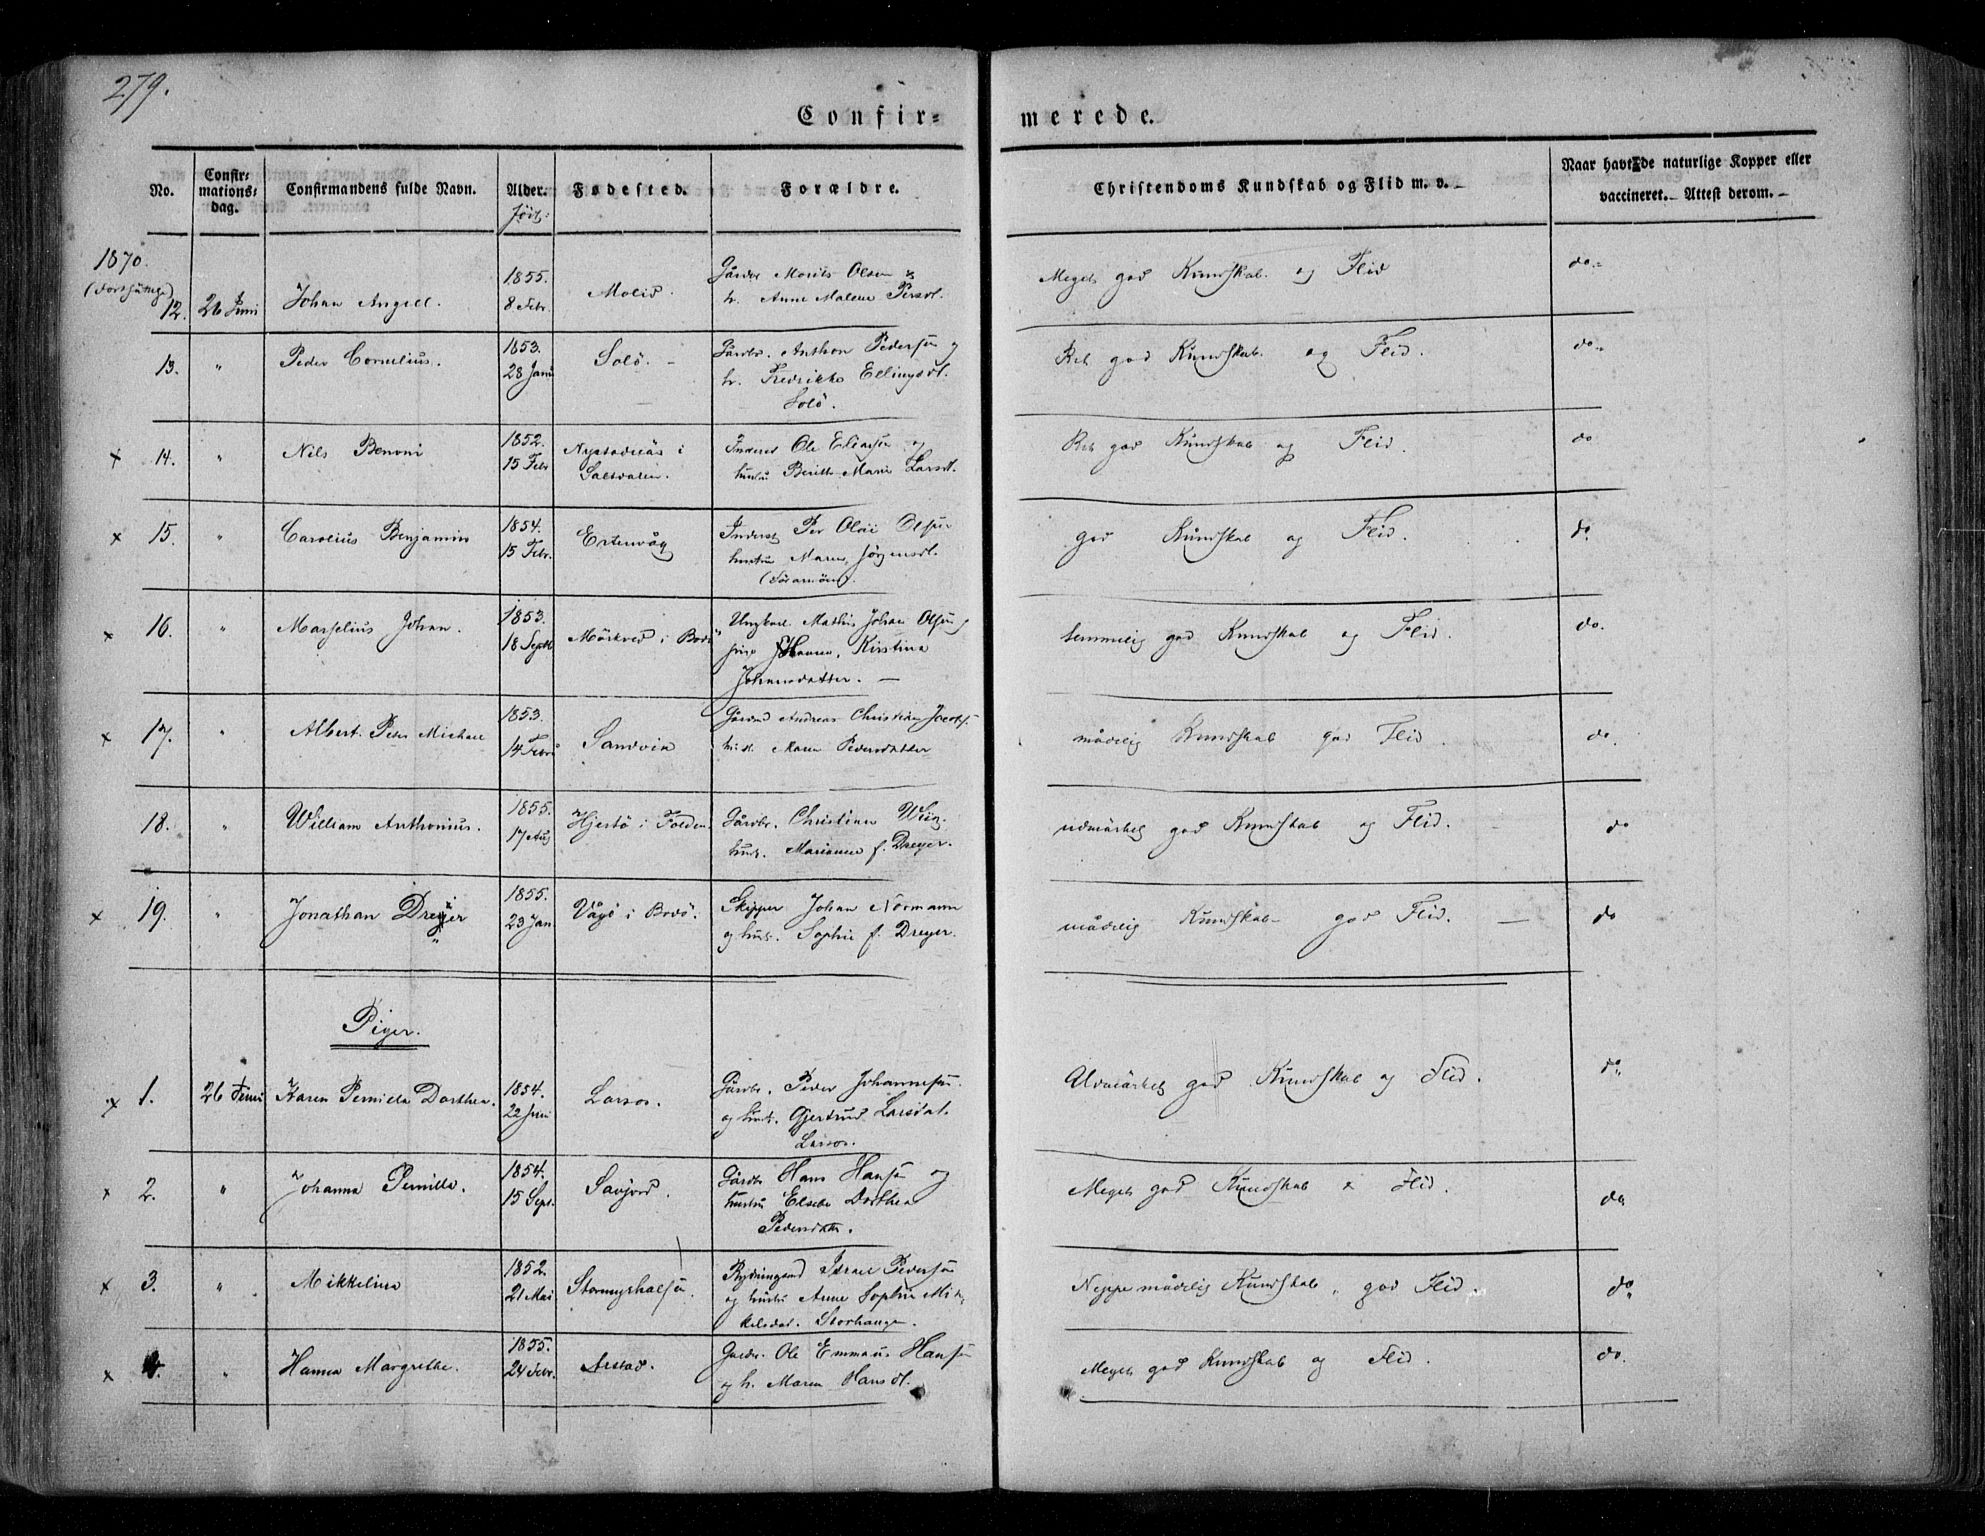 279.
Confir- merede.
No. Confir-mations-dag. Confirmandens fulde Navn. Alder. Fødested. Forældre. Christendoms Kundskab og Flid m. v. Naar havt de naturlige Kopper eller vaccineret. Attest derom.
født:
1870.
12. 26 Juni Johan Angell. 1855. 8 Febr. Molid. Gårdbr. Morits Olsen & Meget god Kundskab og Flid do
h. Anne Malene Persdt.
13. " Peder Cornelius. 1853. 28 Janu Solö. Gårdbr. Anthon Pedersen og Ret god Kundskab og Flid. do
h. Fredrikke Ellingsdt.
Solö.
x 14. " Nils Benoni 1852. 15 Febr Inderst Ole Eliassen og Ret god Kundskab og Flid. do
Saltdalen. hustru Berith Marie Larsdt.
x 15. " Carolius Benjamin 1854. 15 Febr. Ertenvåg Inderst Per Olai Olsen god Kundskab og Flid. do
hustru Maren Jörgensdt.
x 16. " Marselius Johan. 1853. 18 Septb Mörkved i Bodö Ungkarl Mathis Johan Olsen & temmelig god Kundskab og Flid. do.
pige Hanna Kirstina
Johannsdatter. —
x 17. " Albert Peter Michael 1853. 14 Febru Sandvik Gårdmd Andreas Christian Jacobs. mådelig Kundskab god Flid. do.
hust. Maren Pedersdatter
18. " William Anthonius. 1855. 17 Aug Hjertö i Folden. Gårdbr. Christian Weig. udmärket god Kundskab og Flid. do
hust. Marianne f. Dreyer.
x 19. " Jonathan Dreyer 1855. 23 Jan Vågö i Bodö. Skipper Johan Normann mådelig Kundskab god Flid. — do
og hust. Sophie f. Dreyer.
Piger.
x 1. 26 Juni Karen Pernilla Dorthea. 1854. 22 Juni Larsos. Gårdbr. Peder Johannesen. Udmärket god Kundskab og Flid. do
og hust. Gjertrud Larsdat.
Larsos.
x 2. " Johanna Pernille. 1854. 15 Sept. Savjord. Gårdbr Hans Hansen og Meget god Kundskab & Flid. do
hustru Elsebe Dorthea
Pedersdatter.
x 3. " Mikkelina 1852. 21 Mai Rydningsmd Israel Pedersen Neppe mådelig Kundskab, god Flid. do
og hustru Anne Sophie Mik-
kelsdat. Storhaugen.
x 4. " Hanna Margrethe. 1855. 24 Febr. Arstad. Gårdbr. Ole Emmaus Hansen Meget god Kundskab og Flid. do.
og h. Maren Hansdt.